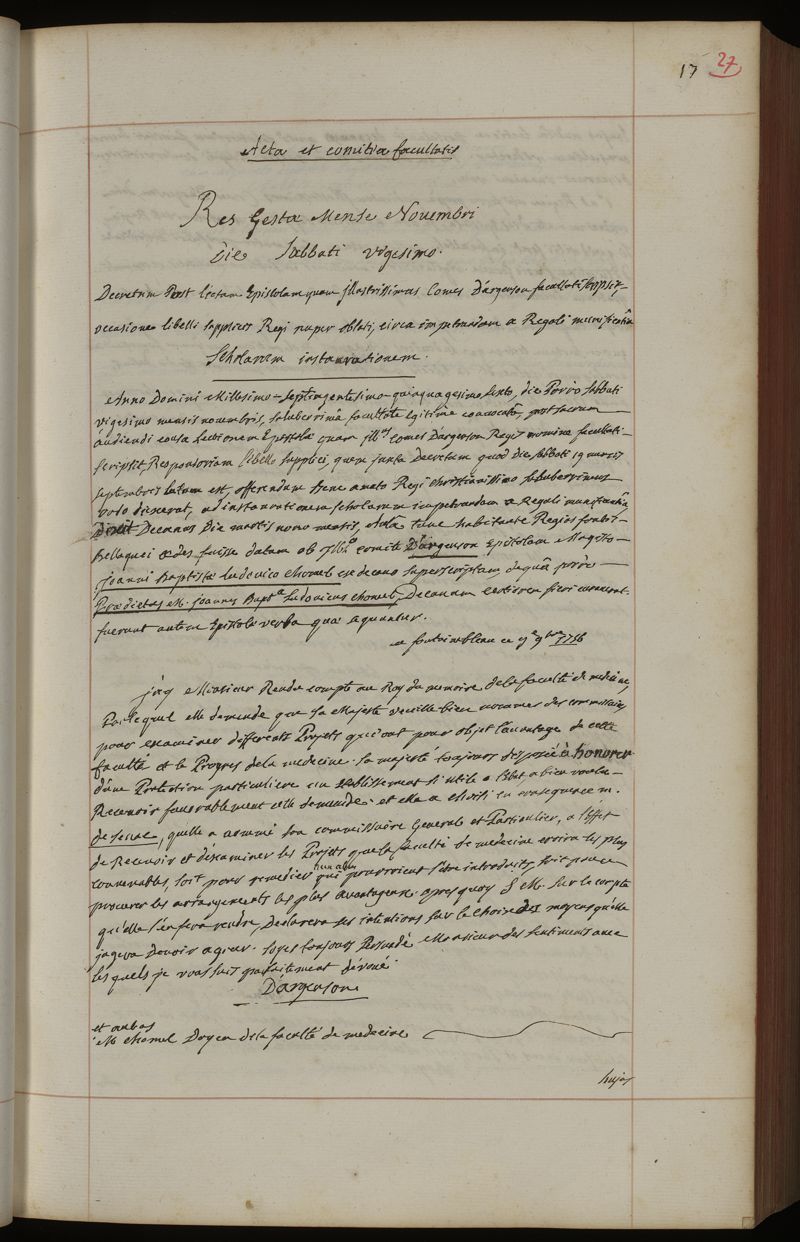 17 27
Acta et comitia facultatis
Res Gestæ Mense Novembri
Die Sabbati vigesimo.
Decretum Post lectam Epistolam quam jllustrissimus Comes D'argenson facultati scripsit,
occasione libelli supplicis Regi nuper oblati, circa impetrandam a Regali munificentiâ
Scholarum instaurationem.
Anno Domini Millesimo-Septingentesimo-quinquagesimo sexto, die Porro Sabbati
vigesimo mensis novembris, saluberrimâ facultate legitime convocatâ, post sacrum
audiendi causa lectionem Epistolæ quam jll.us comes D'argenson Regis nomine facultati
scripsit, Responsoriam libello supplici, quem juxta Decretum quod Die Sabbati 19 mensis
septembris latum est, offerendum bene amato Regi Christianissimo saluberrimus
ordo dixerat, ad instaurationem scholarum impetrandam a Regali munificentiâ,
Dixit Decanus Die martis nono mensis, Aulâ tunc habitante Regias fontis-
Bellaquei ædes fuisse datam ab jll.mo comite D'argenson Epistolam Magistro
joanni Baptistæ Ludovico Chomel ex decano superscriptam, de quâ porro
Prædictus M. joannes Bap.ta Ludovicus Chomel, Decanum certiorem fieri curavit.
fuerunt autem Epistolæ verba quæ sequuntur.
a fontainebleau ce 9.e 9.bre 1756
j'ay Monsieur Rendu compte au Roy du memoire de la faculté de medecine,
Par lequel elle demande que sa Majesté veuille bien nommer des commissaires
pour examiner differents Projets qui ont pour objet l'avantage de cette
faculté et le Progres de la medecine. sa majesté toujours disposée à honorer
d'une Protection particuliere un Etablissement si utile a l'etat a bien voulu
Recevoir favorablement cette demande. et elle a choisi en consequence m.
de Senac, qu'elle a nommé son commissaire General et Particulier, a l'effet
de Recevoir et d'examiner les Projets que la faculté de medecine croira les plus
convenables, soit pour remedier aux abus qui pourroient s'être introduits, soit pour
procurer les arrangements les plus avantageux. apres quoy S. M. sur le compte
qu'elle s'en fera rendre, Declarera ses intentions sur le choix des moyens qu'elle
jugera devoir agréer. soyes toujours Persuadé Monsieur des sentiments avec
lesquels je vous suis parfaitement dévoué.
D'argenson
et au bas
M. Chomel Doyen de la faculté de medecine
hujus